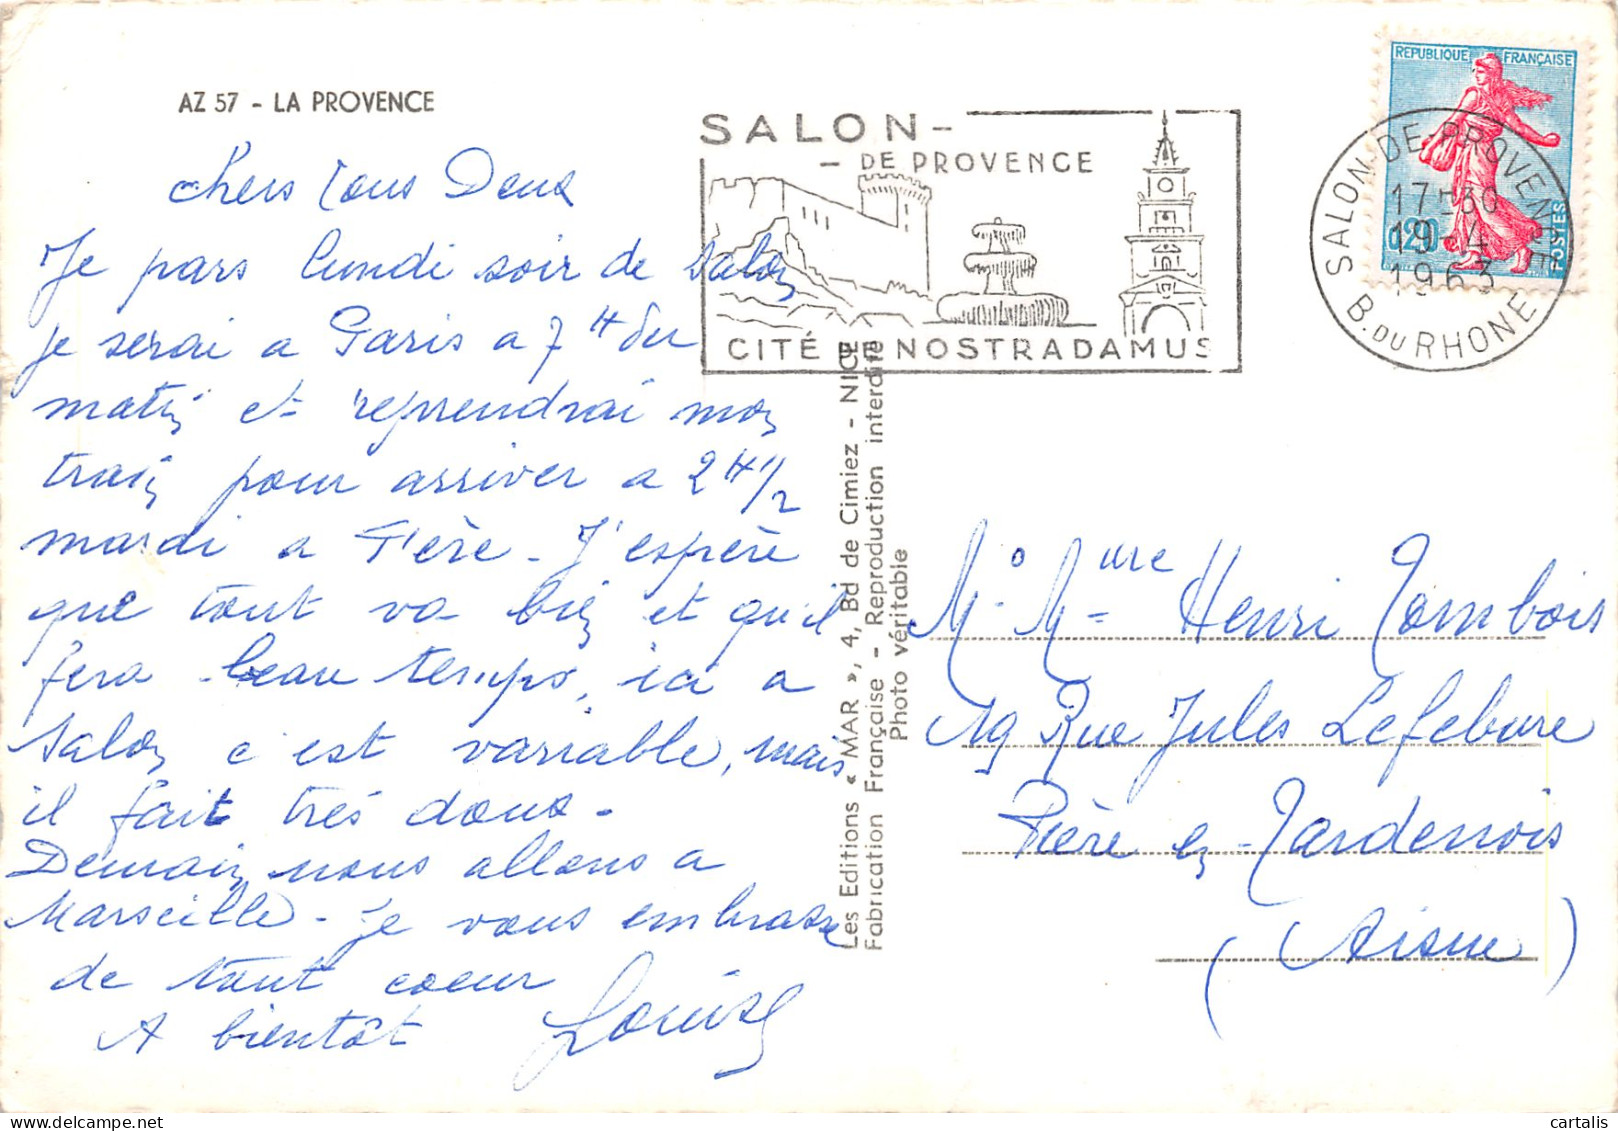 AZ 57 - LA PROVENCE
chers tous Deux
Je pars lundi soir de Salon
je serai a Paris a 7 H du
matin et reprendrai mon
train pour arriver a 2 H 1/2
mardi a Fère - J'espère
que tout va bien et qu'il
fera beau temps, ici a
Salon c'est variable, mais
il fait très doux -
Demain nous allons a
Marseille - je vous embrasse
de tout coeur
A bientôt Louise
SALON -
- DE PROVENCE
CITÉ DE NOSTRADAMUS
REPUBLIQUE FRANÇAISE
0,20
POSTES
SALON-DE-PROVENCE
17H30
19-4
1963
B. DU RHONE
Les Editions « MAR », 4, Bd de Cimiez - NICE
Fabrication Française - Reproduction interdite
Photo véritable
Mo Mme Henri Tombois
19 Rue Jules Lefebure
Fère en Tardenois
(Aisne)
cartalis